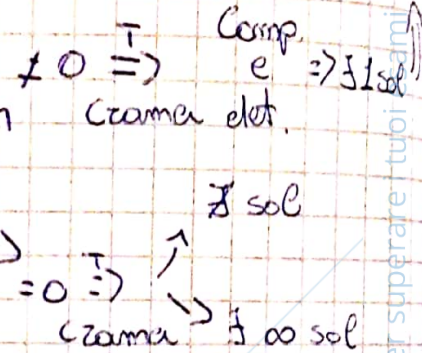 Comp.
≠ 0 =T=> e => ∃ 1 sol
Cramer det.
∄ sol
= 0 =T=> ↗
Cramer ↘ ∃ ∞ sol
er superare i tuoi esami